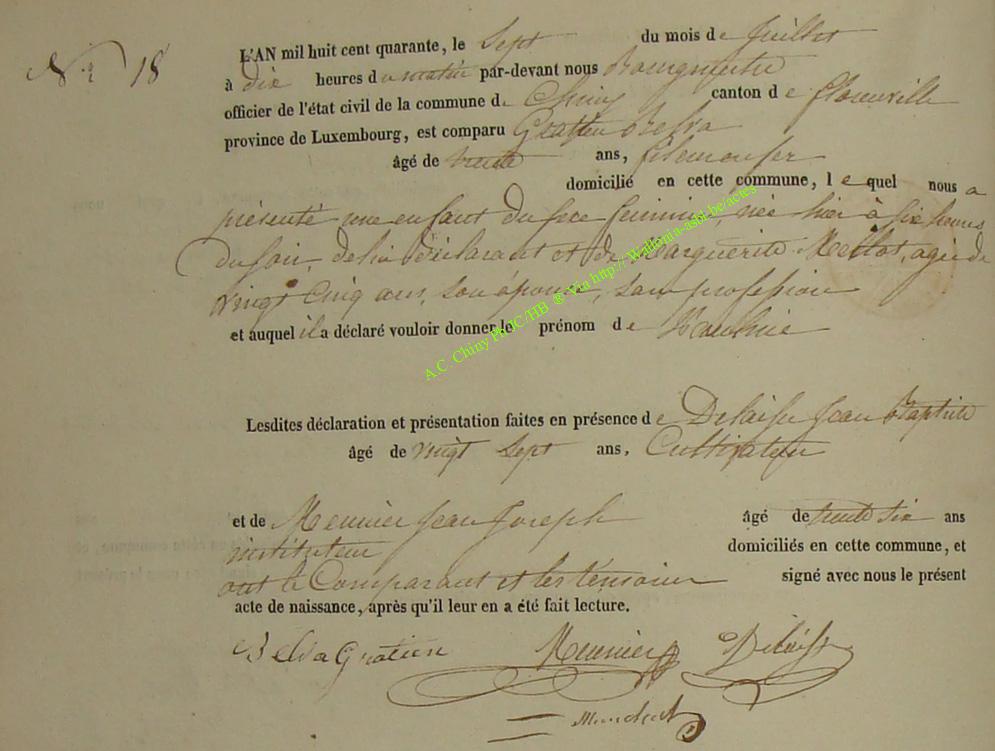 Nr 18
L'AN mil huit cent quarante, le Sept du mois de Juillet
à dix heures du matin par-devant nous Bourgmestre
officier de l'état civil de la commune de Chiny canton de florenville
province de Luxembourg, est comparu Gratien Belva
âgé de trente ans,
domicilié en cette commune, lequel nous a
présenté une enfant du sexe feminin, née hier à six heures
du soir, de lui déclarant et de Marguerite Mellot, agée de
vingt Cinq ans, son épouse, sans profession
et auquel il a déclaré vouloir donner le prénom de
Lesdites déclaration et présentation faites en présence de Delaisse Jean Baptiste
âgé de vingt Sept ans, Cultivateur
et de Meunier Jean Joseph âgé de trente six ans
instituteur domiciliés en cette commune, et
ont le Comparant et les témoins signé avec nous le présent
acte de naissance, après qu'il leur en a été fait lecture.
Belva Gratien Meunier Delaisse
A.C. Chiny PHJC/HB ® Via http://Wallonia-asbl.be/actes